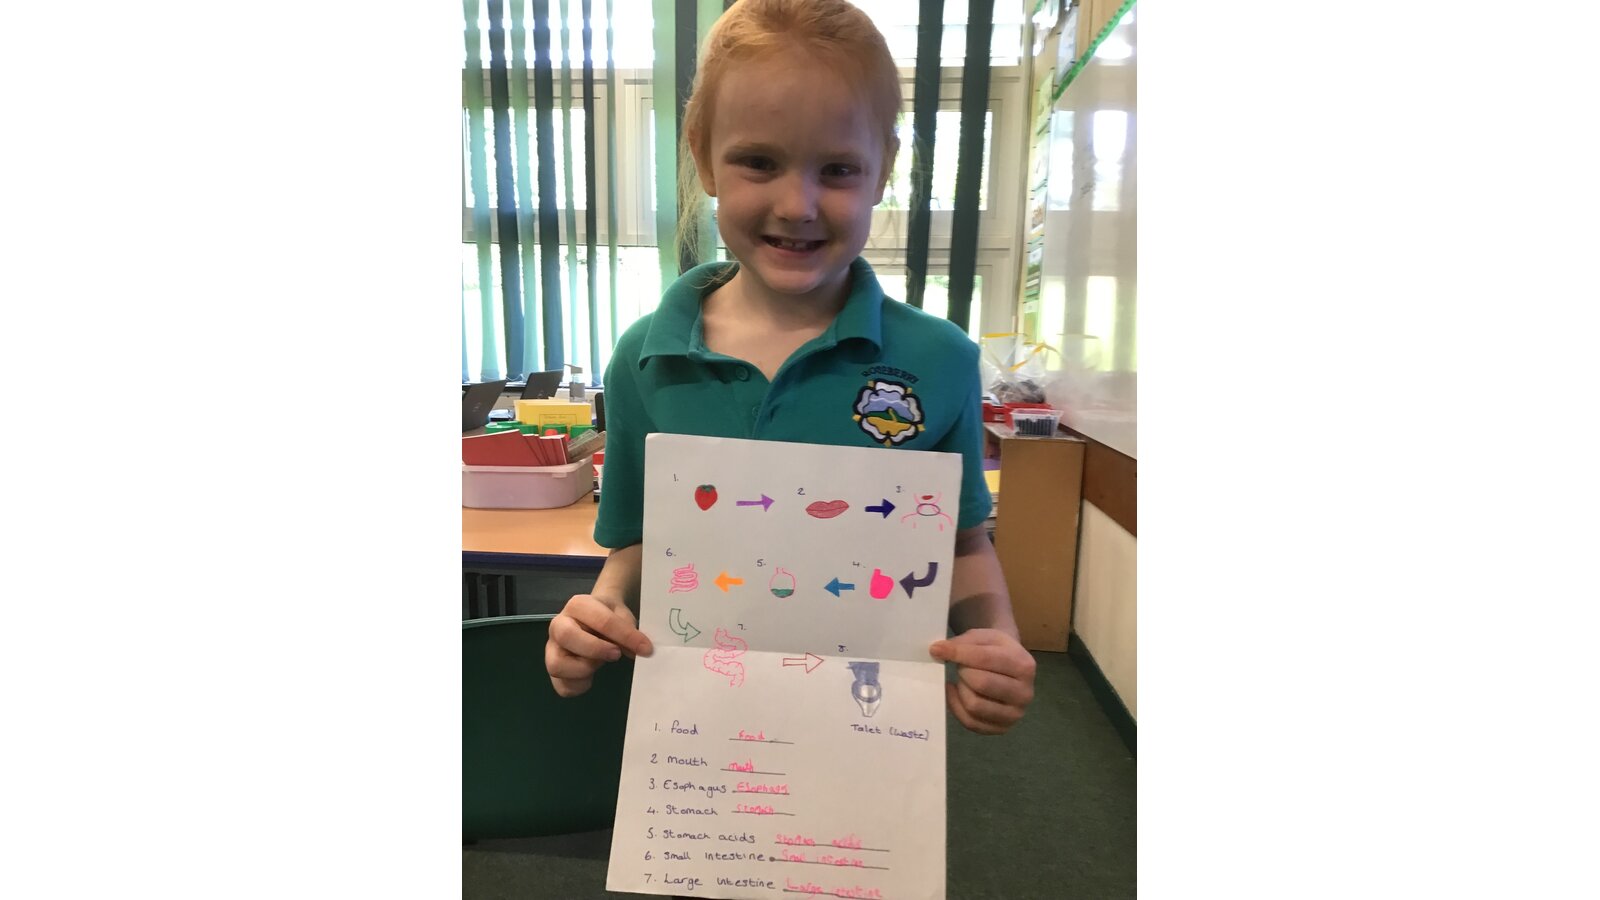 ROSEBERRY
1.
2
3.
6.
5.
4.
7.
8.
Talet (waste)
1. food food
2 mouth mouth
3. Esophagus Esophags
4. Stomach Stomach
5. Stomach acids acids
6. Small intestine Small intestine
7. Large intestine Large intestine